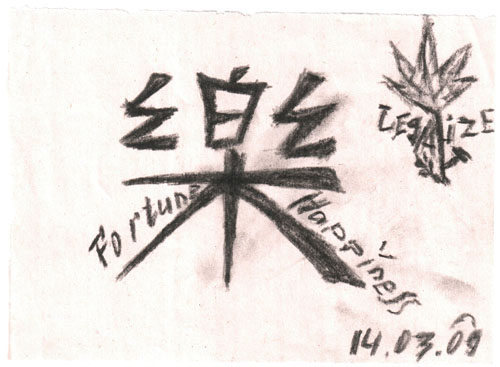 樂
LEGALIZE
Fortune
Happiness
14.03.09